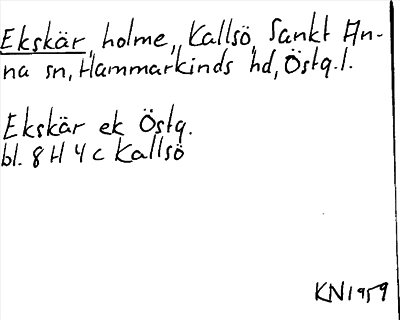 Ekskär, holme, Kallsö, Sankt An-
na sn, Hammarkinds hd, Östg.l.
Ekskär ek Östg.
bl. 8 H 4 c Kallsö
KN1959